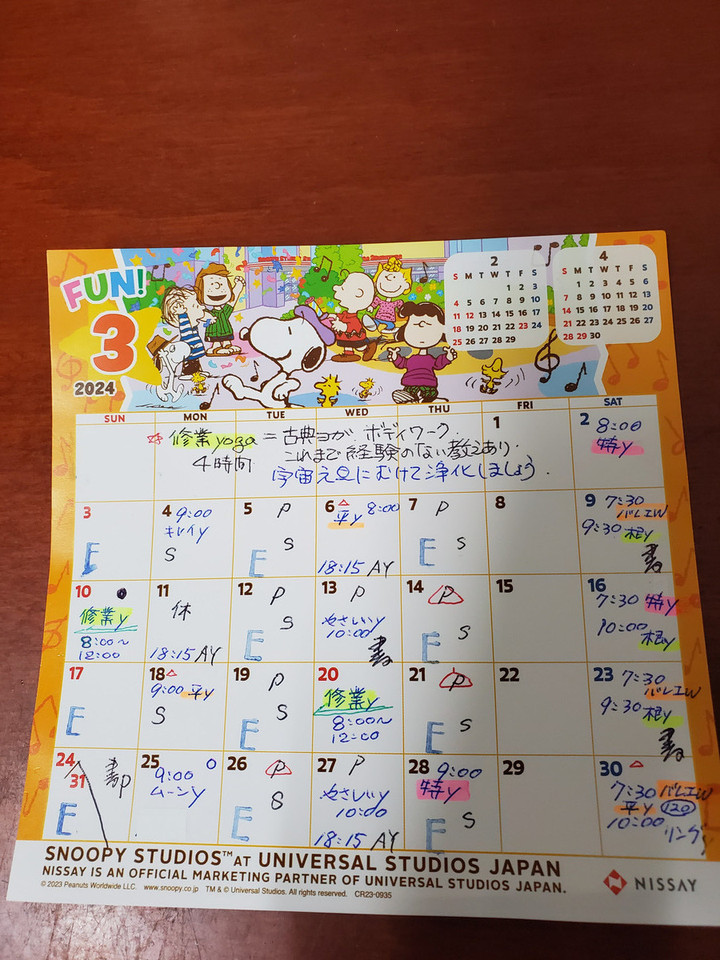 FUN!
3
2024
2
S M T W T F S
1 2 3
4 5 6 7 8 9 10
11 12 13 14 15 16 17
18 19 20 21 22 23 24
25 26 27 28 29
4
S M T W T F S
1 2 3 4 5 6
7 8 9 10 11 12 13
14 15 16 17 18 19 20
21 22 23 24 25 26 27
28 29 30
SUN MON TUE WED THU FRI SAT
☆ 修業yoga = 古典ヨガ ボディワーク.
4時間 これまで経験のない教えあり.
宇宙元旦にむけて浄化しましょう.
1
2 8:00
特y
3 E
4 9:00
キレイy
S
5 P
E S
6 △ 8:00
平y
18:15 AY
7 P
E S
8
9 7:30
バレエW
9:30 根y
10 ●
修業y
8:00~
12:00
11
休
18:15 AY
12 P
E S
13 P
やさしいy
10:00
14 P
E S
15
16
7:30 特y
10:00 根y
17
E
18 △
9:00 平y
S
19 P
E S
20
修業y
8:00~
12:00
21 P
E S
22
23 7:30
バレエW
9:30 根y
24
31
E
25 ○
9:00
ムーンy
26 P
E S
27 P
やさしいy
10:00
18:15 AY
28 9:00
特y
E S
29
30 △
7:30 バレエW
平y 120
10:00
リング
SNOOPY STUDIOS™ AT UNIVERSAL STUDIOS JAPAN
NISSAY IS AN OFFICIAL MARKETING PARTNER OF UNIVERSAL STUDIOS JAPAN.
© 2023 Peanuts Worldwide LLC. www.snoopy.co.jp TM & © Universal Studios. All rights reserved. CR23-0935
NISSAY